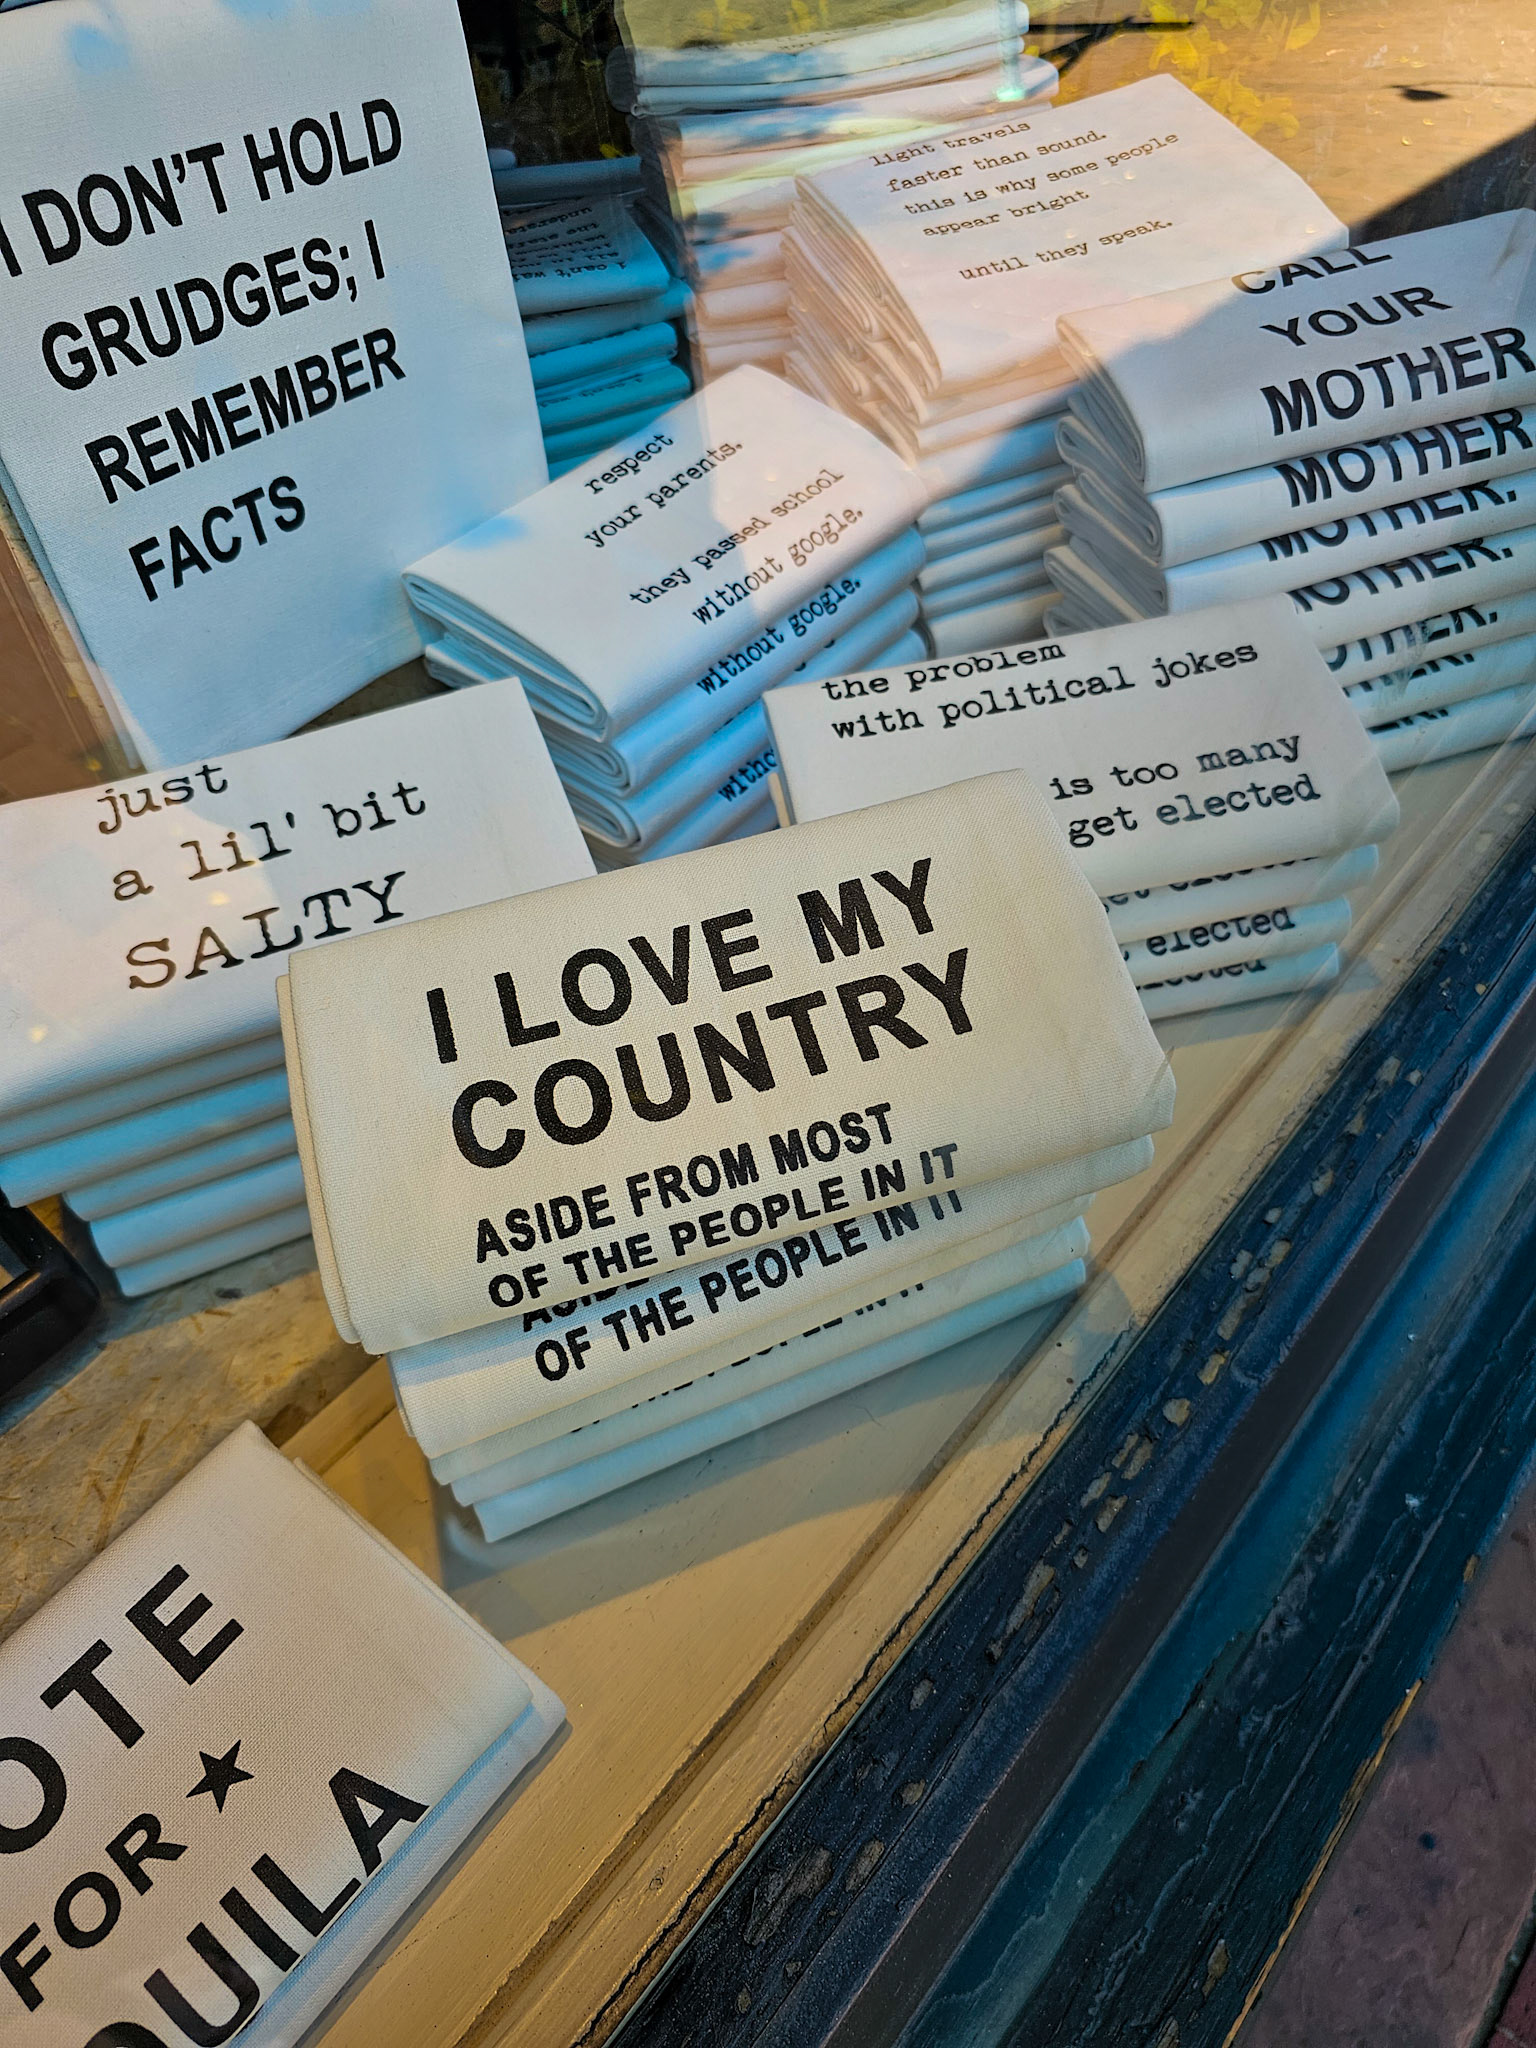 I DON'T HOLD
GRUDGES; I
REMEMBER
FACTS
i can't wai
light travels
faster than sound.
this is why some people
appear bright
until they speak.
CALL
YOUR
MOTHER,
MOTHER,
MOTHER,
MOTHER,
OTHER,
respect
your parents.
they passed school
without google.
without google.
witho
the problem
with political jokes
is too many
get elected
get elected
elected
elected
just
a lil' bit
SALTY
I LOVE MY
COUNTRY
ASIDE FROM MOST
OF THE PEOPLE IN IT
ASIDE
OF THE PEOPLE IN IT
PEOPLE IN IT
OTE
FOR ★
QUILA